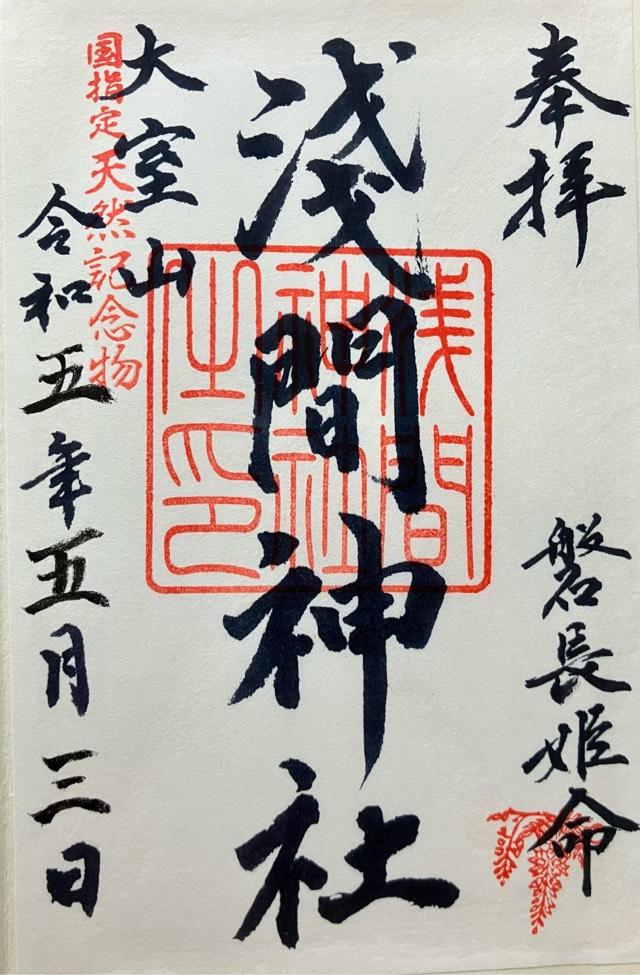 奉拝
磐長姫命
淺間神社
浅間
神社
之印
大室山
国指定天然記念物
令和五年五月三日